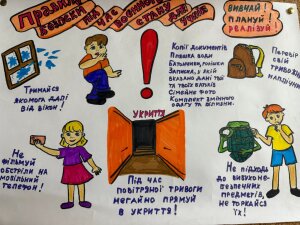 Правила
безпеки під час воєнного
стану для учнів
Вивчай!
Плануй!
Реалізуй!
Тримайся
якомога далі
від вікон!
Копії документів
Пляшка води
Батьничок, горішки
Записка, у якій
вказано дані твої
та твоїх батьків
Сімейне фото
Комплект змінного
одягу та білизни.
Перевір
свій
тривожний
наплічник
Не
фільмуй
обстріли на
мобільний
телефон!
УКРИТТЯ
Під час
повітряної тривоги
негайно прямуй
в укриття!
Не підходь
до вибухоне-
безпечних
предметів,
не торкайся
їх!